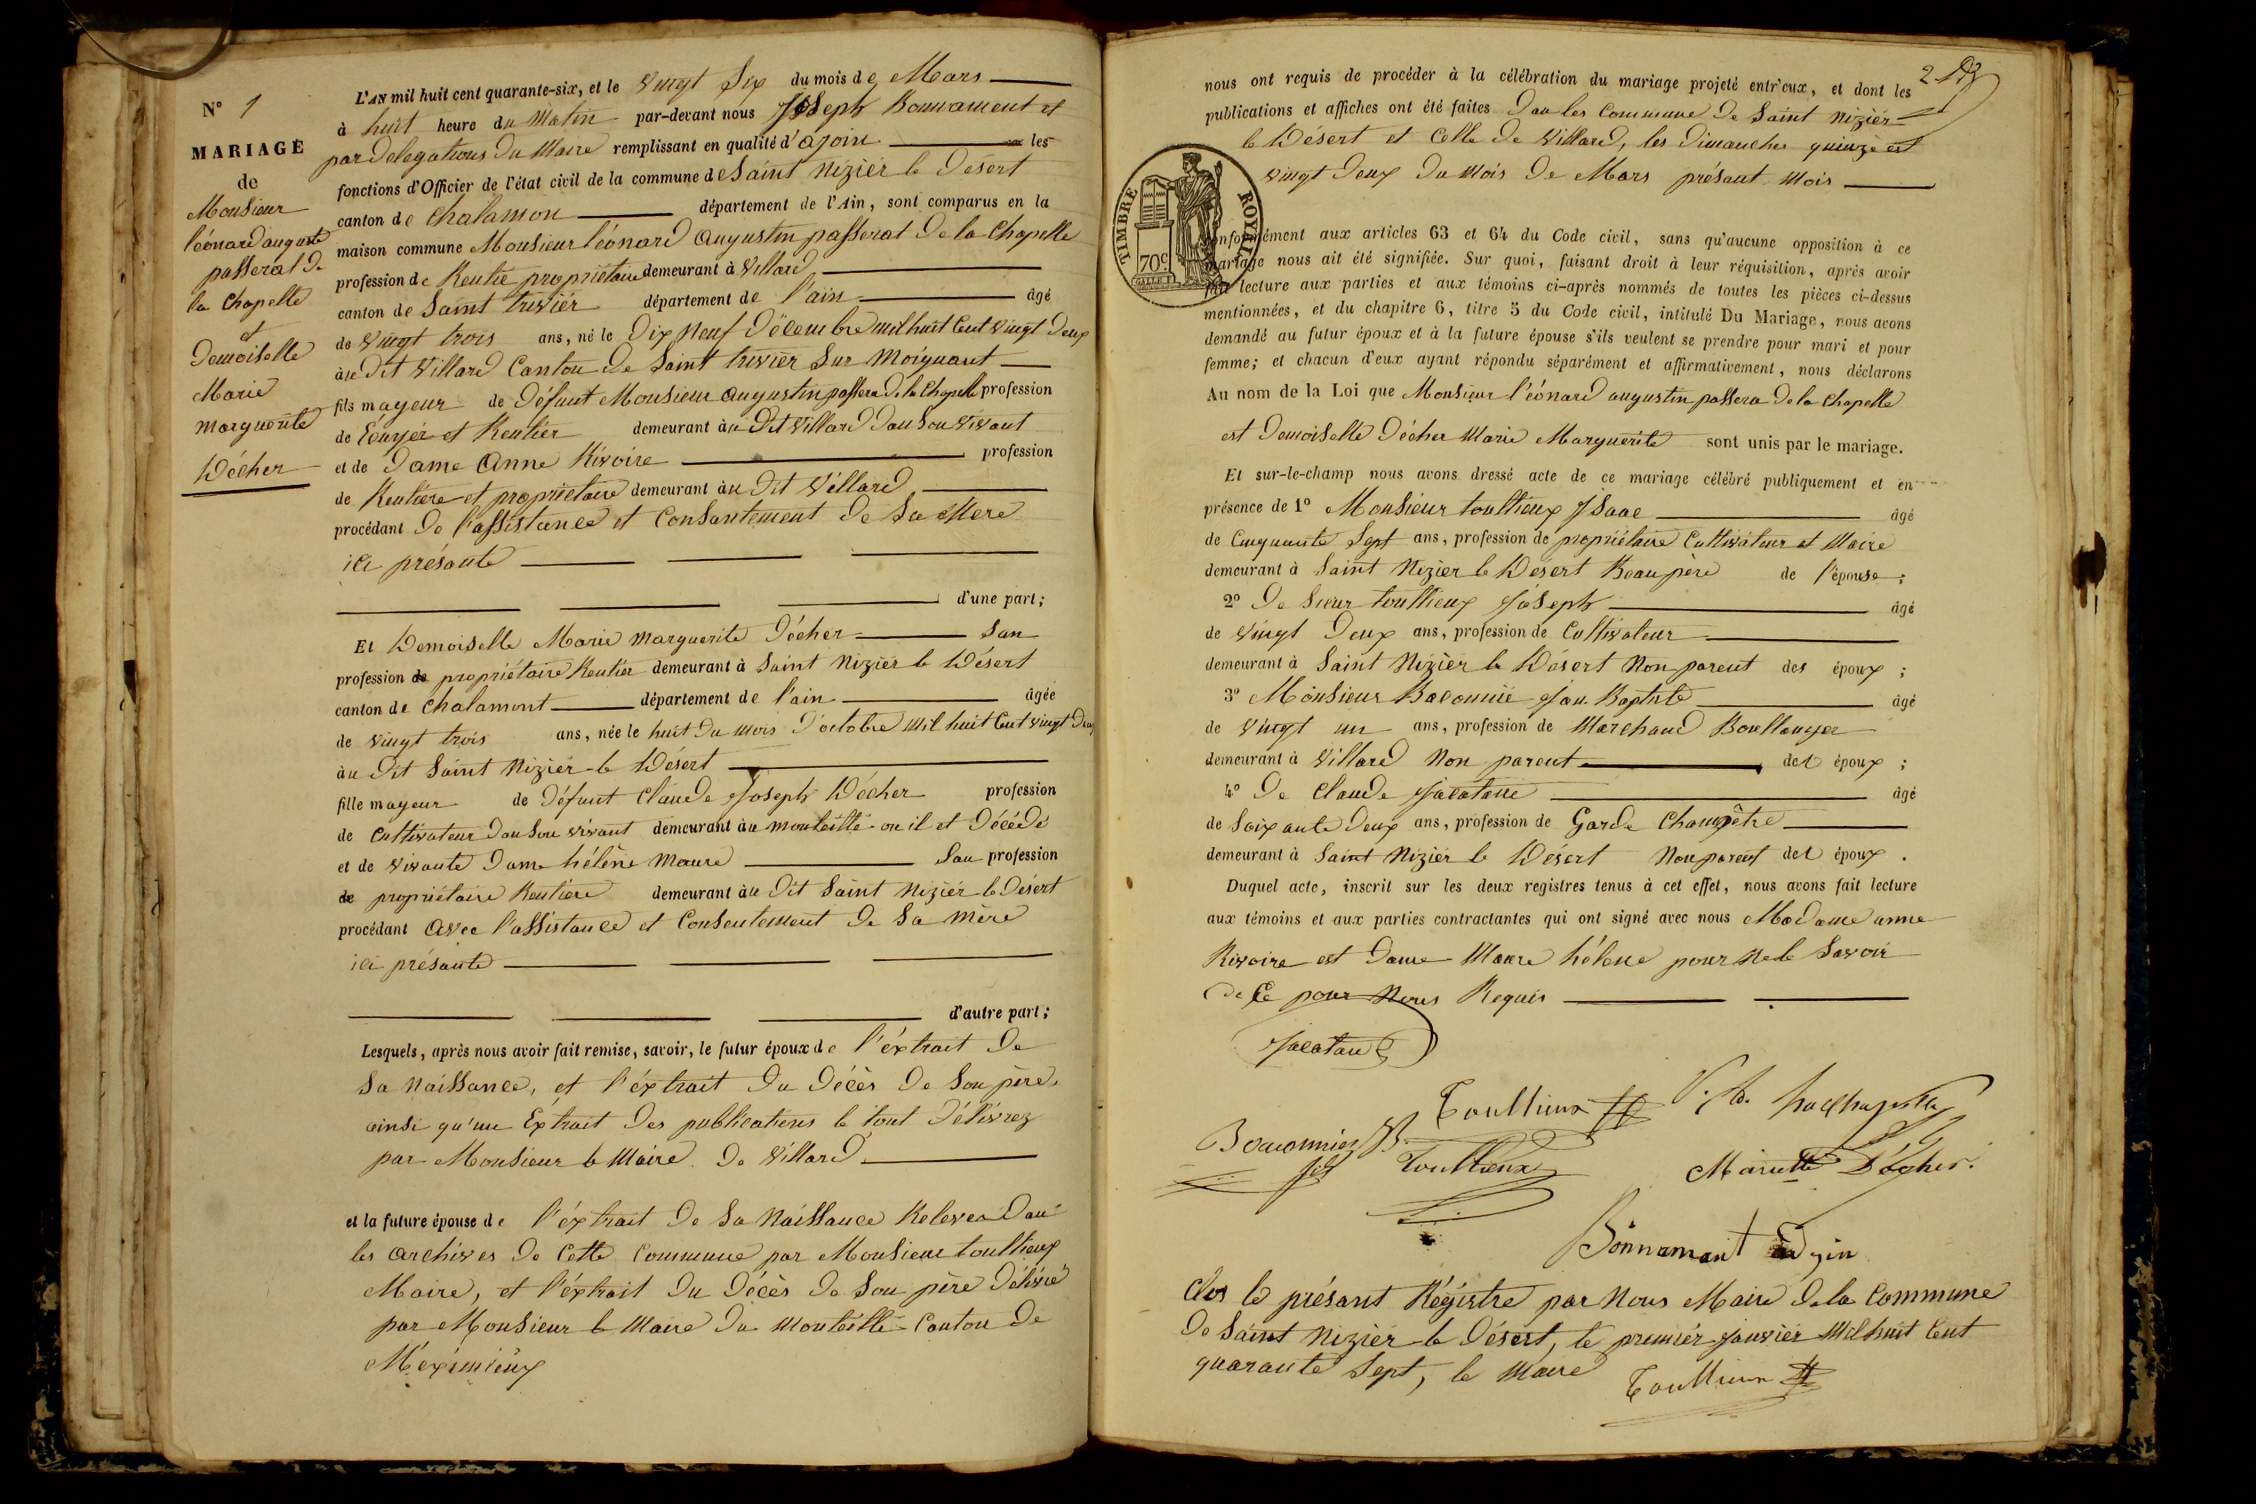 N° 1
MARIAGE
de
Monsieur
léonard auguste
passerat de
la Chapelle
et
Demoiselle
Marie
Marguerite
Décher
L'AN mil huit cent quarante-six, et le vingt Six du mois de Mars
à huit heure du Matin par-devant nous Joseph Bonnament et
par Delegations Du Maire remplissant en qualité d'ajoin les
fonctions d'Officier de l'état civil de la commune de Saint Nizier le Désert
canton de Chalamon département de l'Ain, sont comparus en la
maison commune Monsieur léonard augustin passerat De la Chapelle
profession de Rentié propriétaire demeurant à Villard
canton de Saint triviér département de l'ain âgé
de vingt trois ans, né le Dix Neuf Décembre mil huit Cent vingt Deux
à le Dit Villard Canton De Saint trivier Sur Moignant
fils mayeur de Défunt Monsieur augustin passera De la Chapelle profession
de Ecuyér et Rentiér demeurant au Dit Villard Dan Son Vivant
et de Dame Anne Rivoire profession
de Rentiere et propriétaire demeurant au Dit Villard
procédant De l'assistance et Consantement De Sa Mere
ici présante
d'une part;
Et Demoiselle Marie Marguerite Décher San
profession de propriétaire Rentier demeurant à Saint Nizier le Désert
canton de Chalamont département de l'ain âgée
de vingt trois ans, née le huit Du mois D'octobre mil huit Cent vingt Deux
au Dit Saint Niziér le Désert
fille mayeur de Défunt Claude Joseph Décher profession
de Cultivateur Dan Son vivant demeurant au Monteillié ou il et Décédé
et de vivante Dame hélène Maure San profession
de propriétaire Rentiere demeurant au Dit Saint Niziér le Désert
procédant Avec l'assistance et Consentement De Sa Mère
ici présante
d'autre part;
Lesquels, après nous avoir fait remise, savoir, le futur époux de l'éxtrait De
Sa Naissance, et l'éxtrait Du Décès De Son père,
ainsi qu'un Extrait Des publications le tout Délivrez
par Monsieur le Maire De Villard
et la future épouse de l'éxtrait De Sa Naissance Relever Dan
les archives De Cette Commune par Monsieur toullieux
Maire, et l'éxtrait Du Décès De Son père Délivré
par Monsieur le Maire Du Monteillié Canton De
Méximieux
nous ont requis de procéder à la célébration du mariage projeté entr'eux, et dont les
publications et affiches ont été faites Dan les Commune De Saint Niziér
le Désert et Celle De Villard, les Dimanches quinze et
vingt Deux Du Mois De Mars présant Mois
TIMBRE ROYAL
70c
conformément aux articles 63 et 64 du Code civil, sans qu'aucune opposition à ce
mariage nous ait été signifiée. Sur quoi, faisant droit à leur réquisition, après avoir
fait lecture aux parties et aux témoins ci-après nommés de toutes les pièces ci-dessus
mentionnées, et du chapitre 6, titre 5 du Code civil, intitulé Du Mariage, nous avons
demandé au futur époux et à la future épouse s'ils veulent se prendre pour mari et pour
femme; et chacun d'eux ayant répondu séparément et affirmativement, nous déclarons
Au nom de la Loi que Monsieur l'éonard augustin passera De la Chapelle
est Demoiselle Décher Marie Marguerite sont unis par le mariage.
Et sur-le-champ nous avons dressé acte de ce mariage célébré publiquement et en
présence de 1° Monsieur toullieux Isaac âgé
de Cinquante Sept ans, profession de propriétaire Cultivateur et Maire
demeurant à Saint Nizier le Désert Beau père de l'épouse;
2° De Sieur toullieux Joseph âgé
de vingt Deux ans, profession de Cultivateur
demeurant à Saint Nizier le Désert Non parent des époux;
3° Monsieur Baconnié Jan Baptiste âgé
de vingt un ans, profession de Marchand Boullanger
demeurant à Villard Non parent des époux;
4° De Claude Jacatane âgé
de Soixante Deux ans, profession de Garde Champêtre
demeurant à Saint Niziér le Désert Non parent des époux.
Duquel acte, inscrit sur les deux registres tenus à cet effet, nous avons fait lecture
aux témoins et aux parties contractantes qui ont signé avec nous Madame anne
Rivoire est Dame Maure hélene pour Ne le Savoir
De Ce pour Nous Requis
Jacatan
Toullieux
LaChapelle
Toullieux
Mariette Décher.
Bonnamant adjoin
Clos le présant Régistre par Nous Maire De la Commune
De Saint Niziér le Désert, le premiér Janviér Mil huit Cent
quarante Sept, le Maire
Toullieux